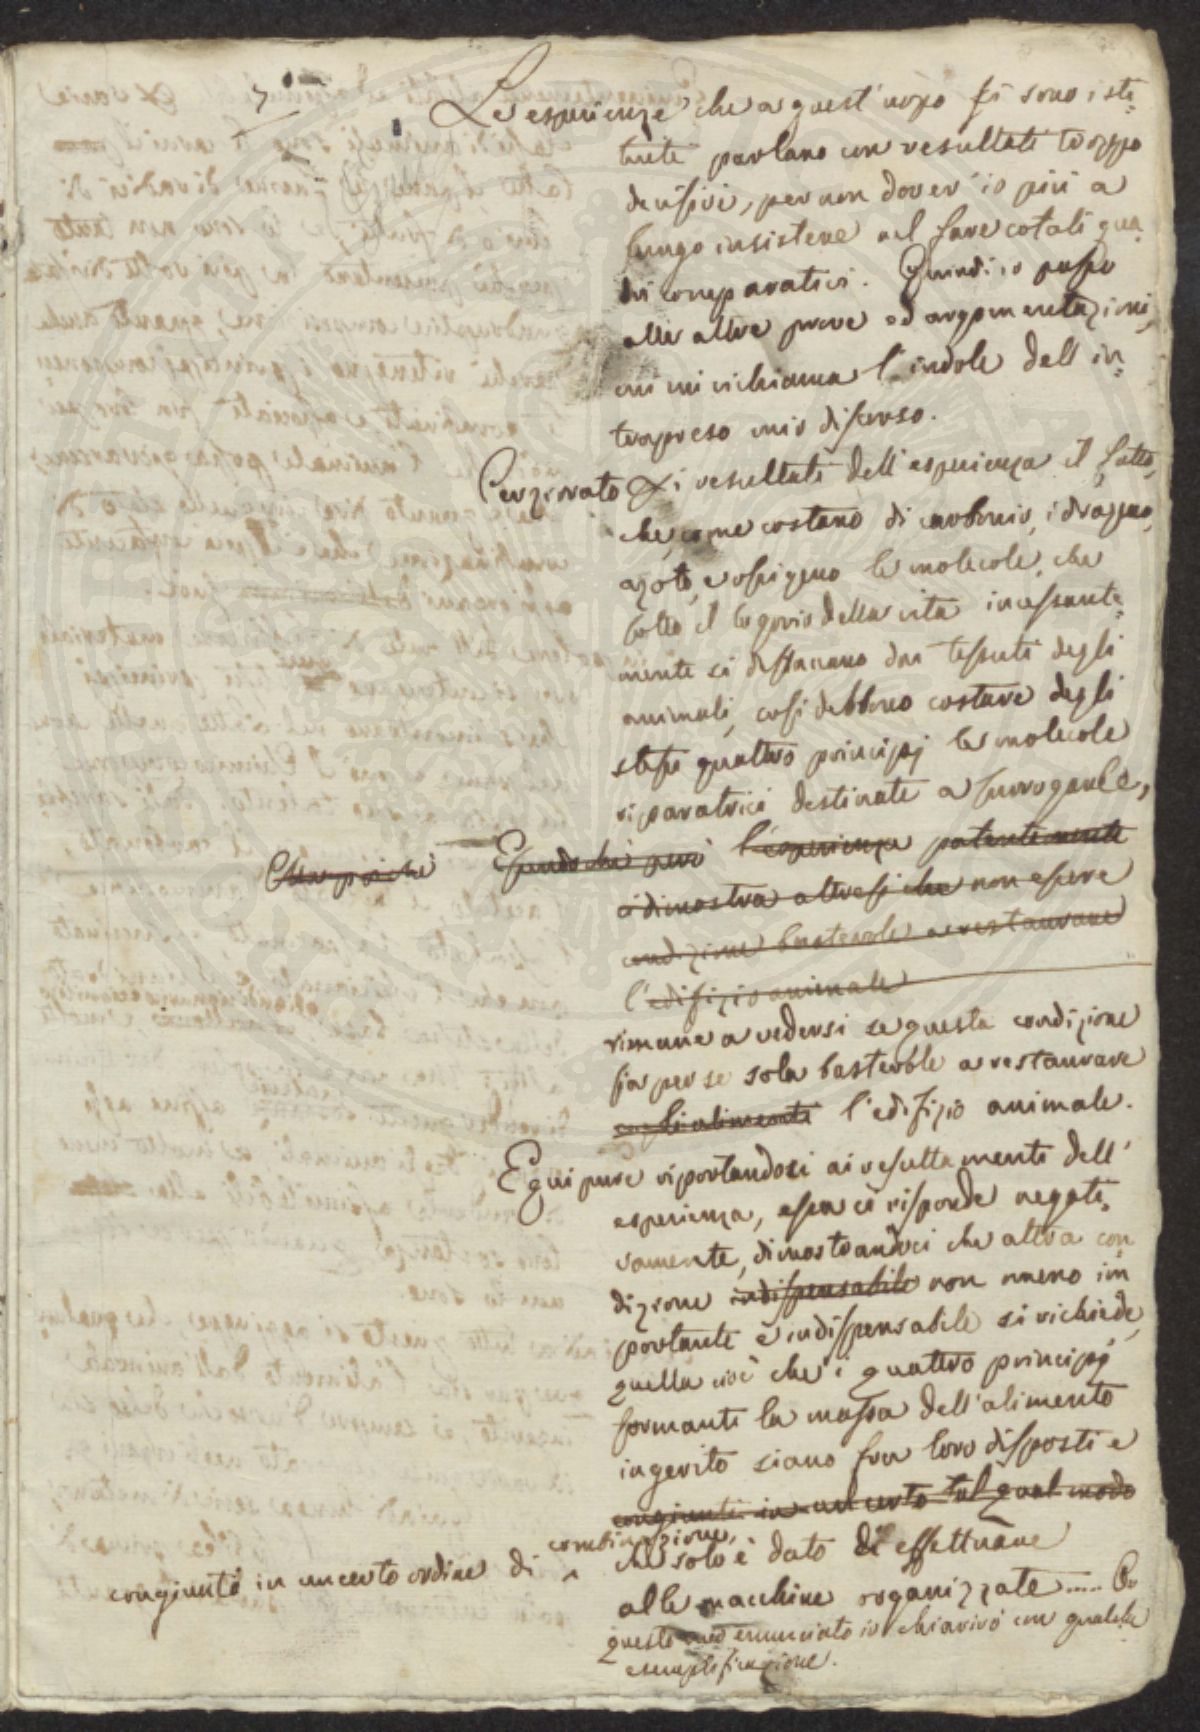 7
Le esperienze che a quest'uopo si sono isti-
tuite parlano con resultati troppo
decisivi, per non dover io più a
lungo insistere nel fare cotali qua-
dri comparativi. Quindi io passo
alle altre prove ed argomentazioni,
cui mi richiama l'indole dell'in-
trapreso mio discorso.
Comprovato i resultati dell'esperienza il fatto,
che, come costano di carbonio, idrogeno,
azoto, e ossigeno le molecole, che
sotto il logorio della vita incessante-
mente si distaccano dai tessuti degli
animali, così debbono costare degli
stessi quattro principj le molecole
riparatrici destinate a surrogarle,
Essendochè però l'esperienza patentemente
ci dimostra altresì che non essere
condizione bastevole a restaurare
l'edifizio animale
rimane a vedersi se questa condizione
sia per se sola bastevole a restaurare
l'edifizio animale.
E qui pure riportandosi ai resultamenti dell'
esperienza, essa ci risponde negati-
vamente, dimostrandoci che altra con
dizione indispensabile non meno im
portante e indispensabile si richiede,
quella cioè che i quattro principj
formanti la massa dell'alimento
ingerito siano fra loro disposti e
congiunti in un certo tal qual modo
congiunti in un certo ordine di combinazione,
che solo è dato di effettuare
alle macchine organizzate .....
questo enunciato io chiarirò con qualche
esemplificazione.